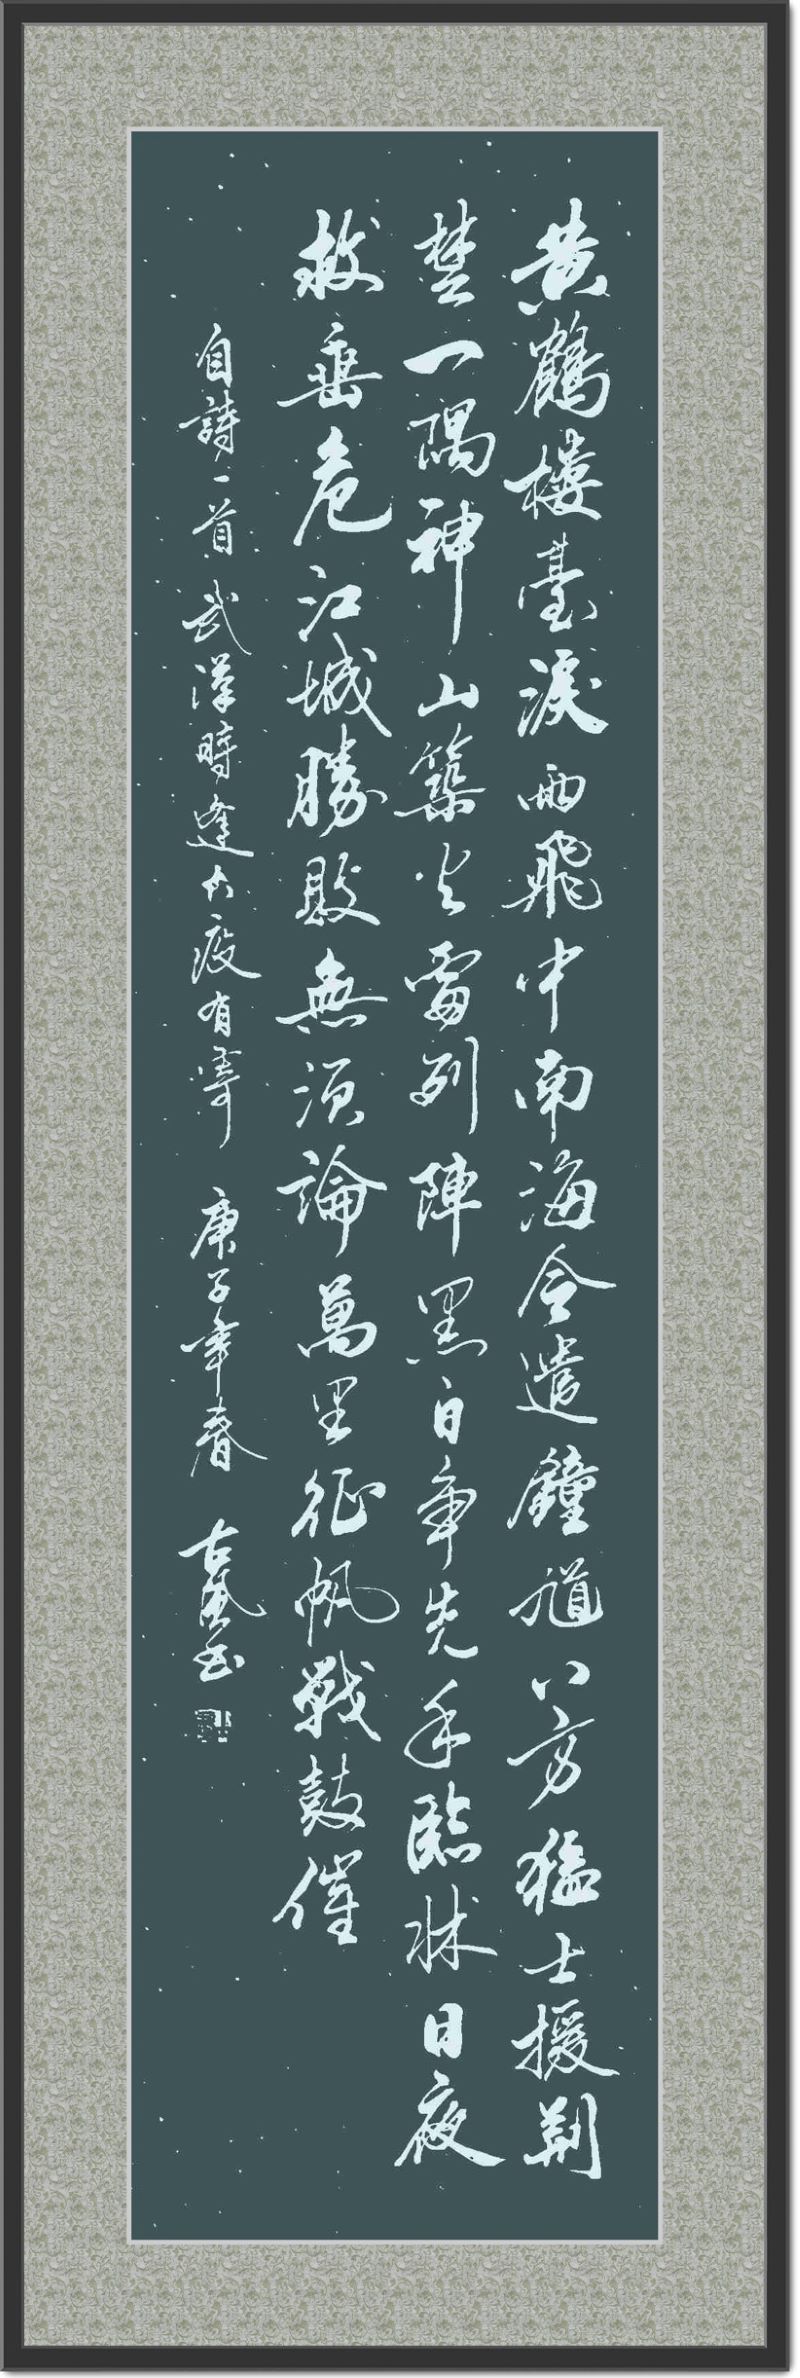 黃鶴樓臺淚雨飛中南海令遣鐘馗八方猛士援荆
楚一隅神山築火雷列陣黑白争先手臨牀日夜
救垂危江城勝敗無須論萬里征帆戰鼓催
自詩一首武漢時逢大疫有寄 庚子年春 古風书